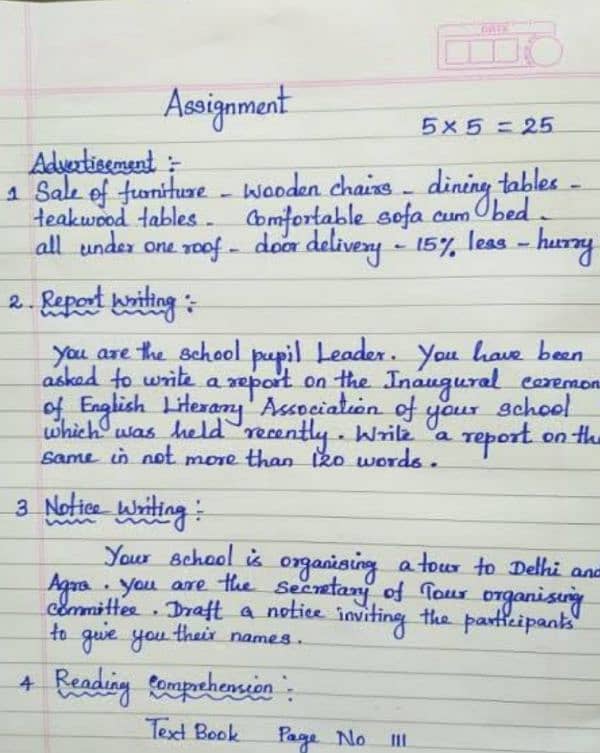 DATE
Assignment
5 x 5 = 25
Advertisement :-
1 Sale of furniture - wooden chairs - dining tables -
teakwood tables - Comfortable sofa cum bed -
all under one roof - door delivery - 15% less - hurry
2. Report Writing :-
You are the school pupil Leader. You have been
asked to write a report on the Inaugural ceremon
of English Literary Association of your school
which was held recently. Write a report on the
same in not more than 120 words.
3 Notice Writing :-
Your school is organising a tour to Delhi and
Agra. You are the secretary of Tour organising
committee. Draft a notice inviting the participants
to give you their names.
4 Reading Comprehension :-
Text Book Page No 111